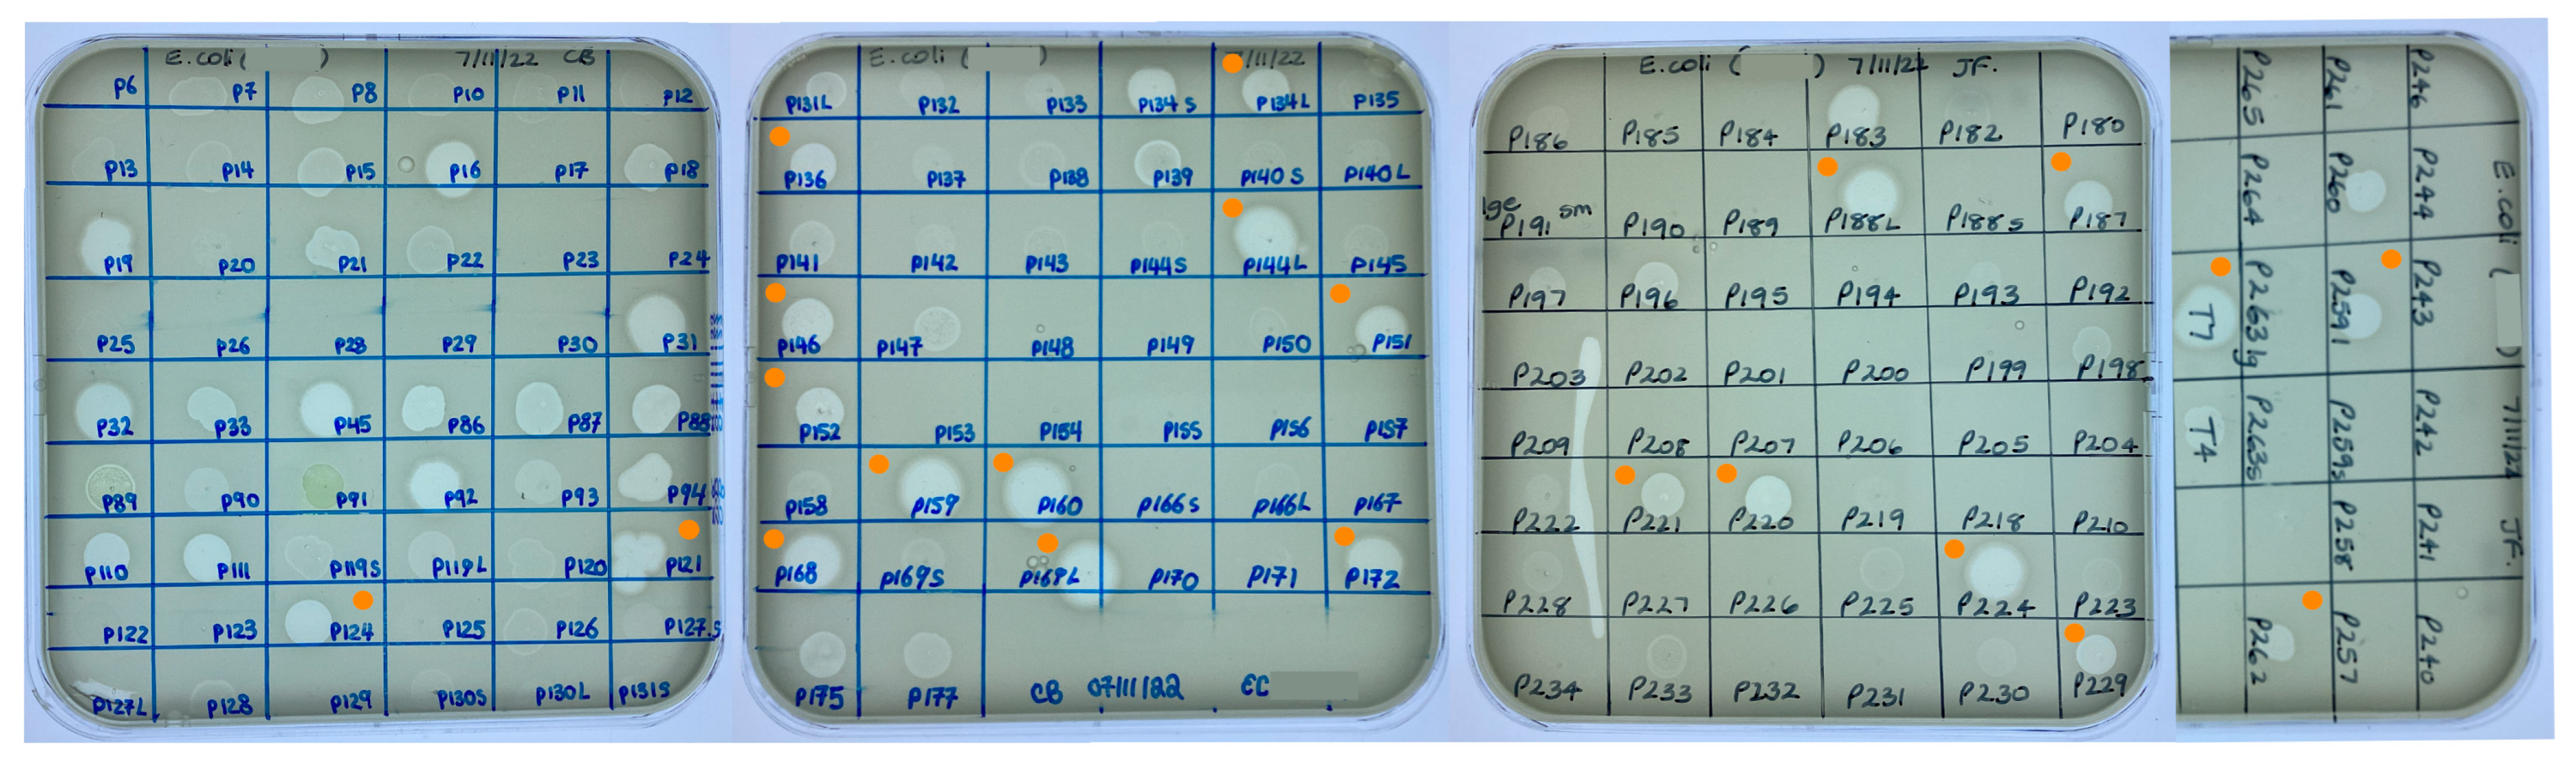 E.coli ( ) 7/11/22 CB
P6 P7 P8 P10 P11 P12
P13 P14 P15 P16 P17 P18
P19 P20 P21 P22 P23 P24
P25 P26 P28 P29 P30 P31
P32 P33 P45 P86 P87 P88
P89 P90 P91 P92 P93 P94
P110 P111 P119S P119L P120 P121
P122 P123 P124 P125 P126 P127S
P127L P128 P129 P130S P130L P131S
E.coli ( ) /11/22
P131L P132 P133 P134S P134L P135
P136 P137 P138 P139 P140S P140L
P141 P142 P143 P144S P144L P145
P146 P147 P148 P149 P150 P151
P152 P153 P154 P155 P156 P157
P158 P159 P160 P166S P166L P167
P168 P169S P169L P170 P171 P172
P175 P177 CB 07/11/22 EC
E.coli ( ) 7/11/22 JF.
P186 P185 P184 P183 P182 P180
lge P191 sm P190 P189 P188L P188S P187
P197 P196 P195 P194 P193 P192
P203 P202 P201 P200 P199 P198
P209 P208 P207 P206 P205 P204
P222 P221 P220 P219 P218 P210
P228 P227 P226 P225 P224 P223
P234 P233 P232 P231 P230 P229
E.coli ( ) 7/11/22 JF.
P246 P244 P243 P242 P241 P240
P261 P260 P259l P259s P258 P257
P265 P264 P263lg P263s P262
T7 T4